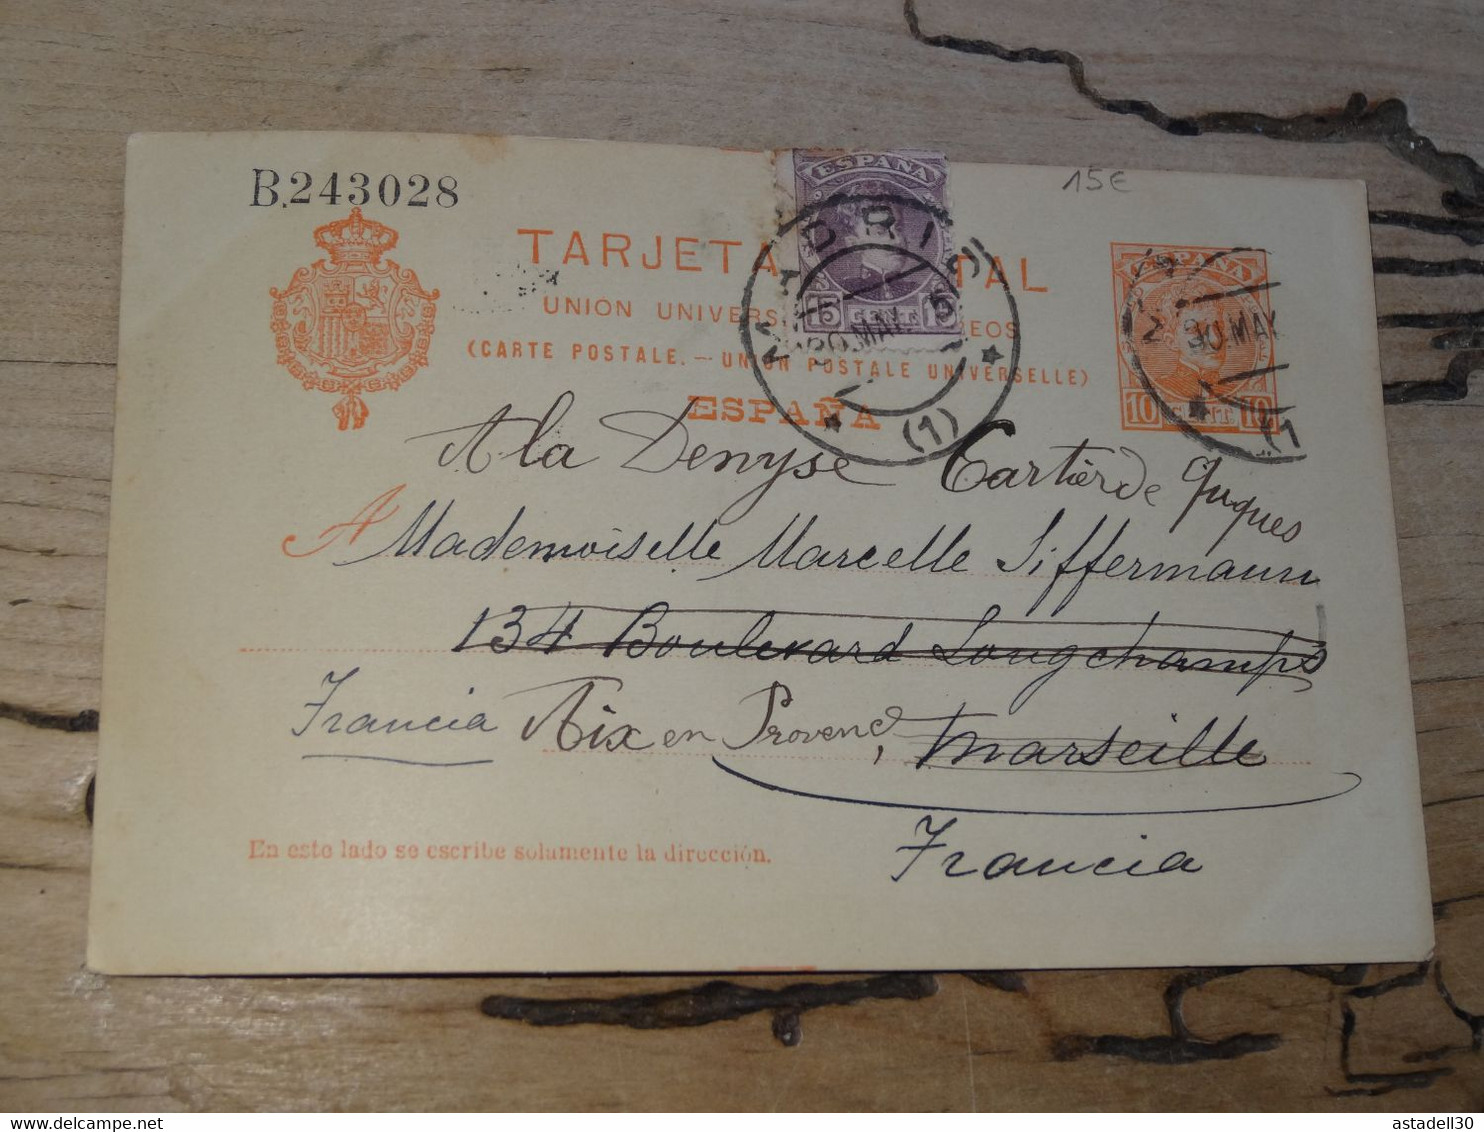 B.243028
15€
ESPAÑA
15 CENT. 15
MADRID
30.MAY.
(1)
ESPAÑA
10 CENT. 10
M
30.MAY.
(1
TARJETA TAL
UNION UNIVERS EOS
(CARTE POSTALE. — UNION POSTALE UNIVERSELLE)
ESPAÑA
A la Denyse Cartier de Juques
A Mademoiselle Marcelle Siffermann
134 Boulevard Longchamps
Francia Aix en Provence, Marseille
Francia
En este lado se escribe solamente la dirección.
delcampe.net
astadell30